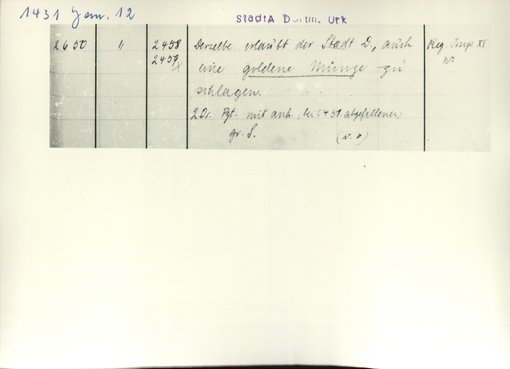 1431 Jan. 12
StadtA Dortm. Urk
2650 " 2458 Derselbe erlaubt der Stadt D., auch Reg. Imp. XI
2459 eine goldene Münze zu Nr
schlagen.
2 Or. Pgt. mit anh. (bei 2458 abgefallenen)
gr. S. (v. o)